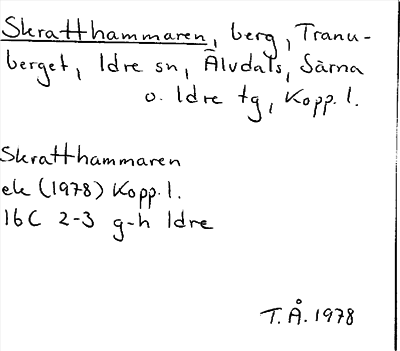 Skratthammaren, berg, Tranu-
berget, Idre sn, Älvdals, Särna
o. Idre tg, Kopp. l.
Skratthammaren
ek (1978) Kopp. l.
16C 2-3 g-h Idre
T.Å. 1978